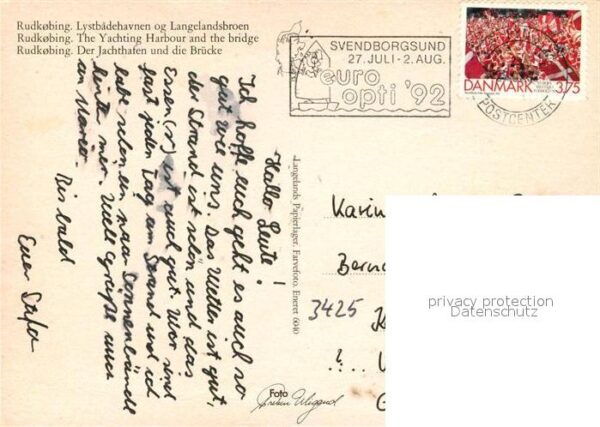 Rudkøbing. Lystbådehavnen og Langelandsbroen
Rudkøbing. The Yachting Harbour and the bridge
Rudkøbing. Der Jachthafen und die Brücke
SVENDBORGSUND
27. JULI - 2. AUG.
euro
opti '92
DANMARK 3.75
POSTCENTER
Hallo Leute!
Ich hoffe euch geht es auch so
gut wie uns. Das Wetter ist gut,
der Strand ist schön und das
Essen(s) ist auch gut. Wir sind
fast jeden Tag am Strand und ich
habe schon einen Sonnenbrand
Viele Grüße
Bis bald
Euer Stefan
Langelands Papirlager. Farvefoto. Eneret 6040
Karin
Bern
3425 K
Foto
privacy protection
Datenschutz